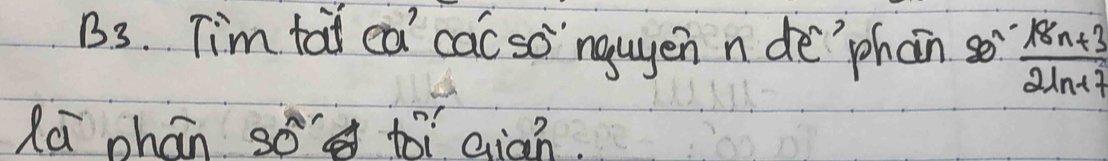 B3. Tìm tất cả các số nguyên n để phân số 18n+3/21n+7
là phân số tối giản.